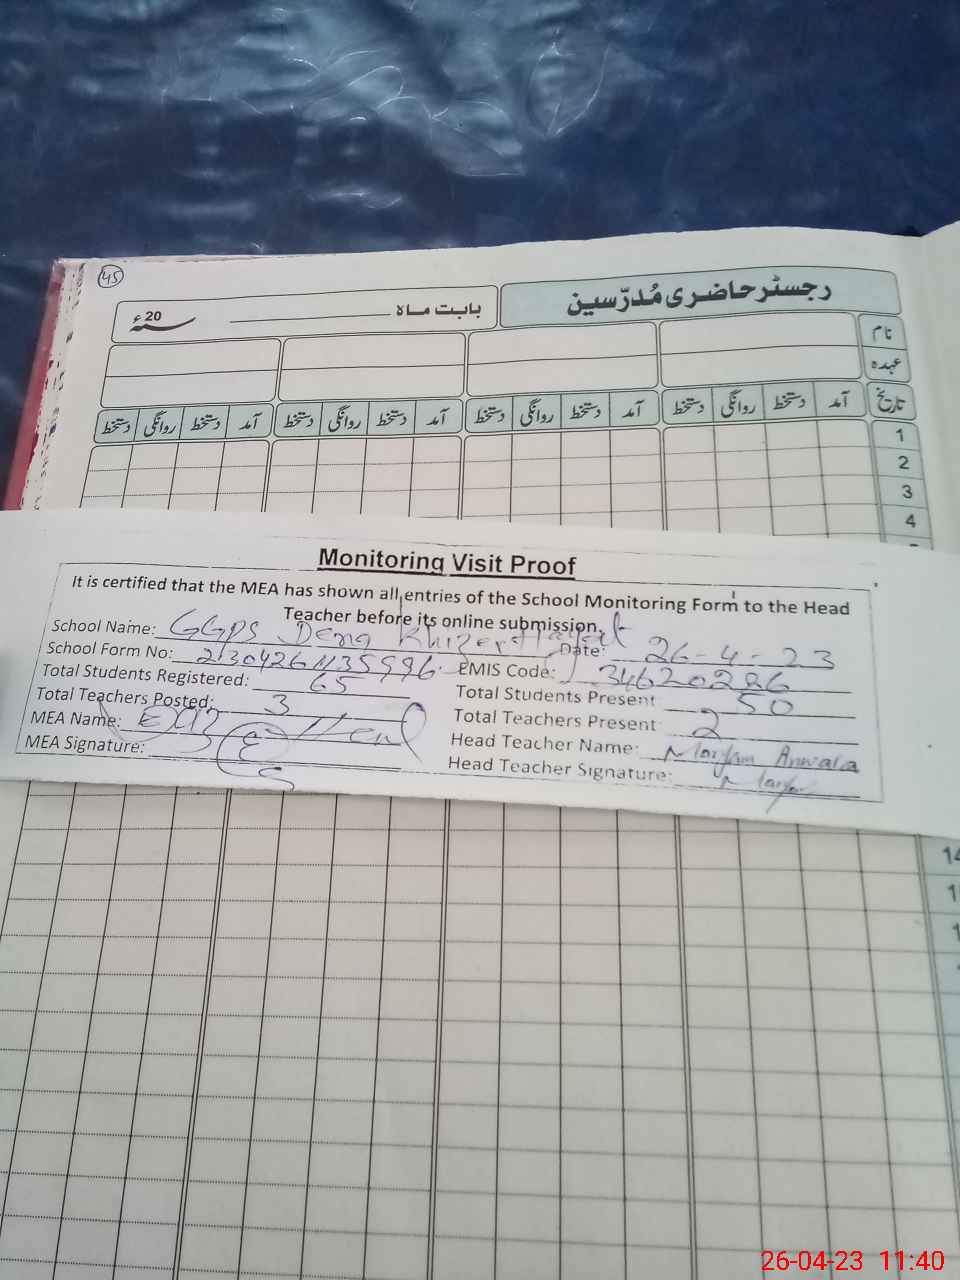 45
رجسٹر حاضری مُدرّسین
بابت ماہ ــــــــ 20ء
نام
عہدہ
تاریخ آمد دستخط روانگی دستخط آمد دستخط روانگی دستخط آمد دستخط روانگی دستخط آمد دستخط روانگی دستخط
1
2
3
4
Monitoring Visit Proof
It is certified that the MEA has shown all entries of the School Monitoring Form to the Head
Teacher before its online submission.
School Name: GGPS Dera Khizer Hayat
Date: 26-4-23
School Form No:
EMIS Code: 34620226
Total Students Registered: 65
Total Students Present: 50
Total Teachers Posted: 3
Total Teachers Present: 2
MEA Name:
Head Teacher Name: Maryam
MEA Signature:
Head Teacher Signature: Maryam
14
26-04-23 11:40